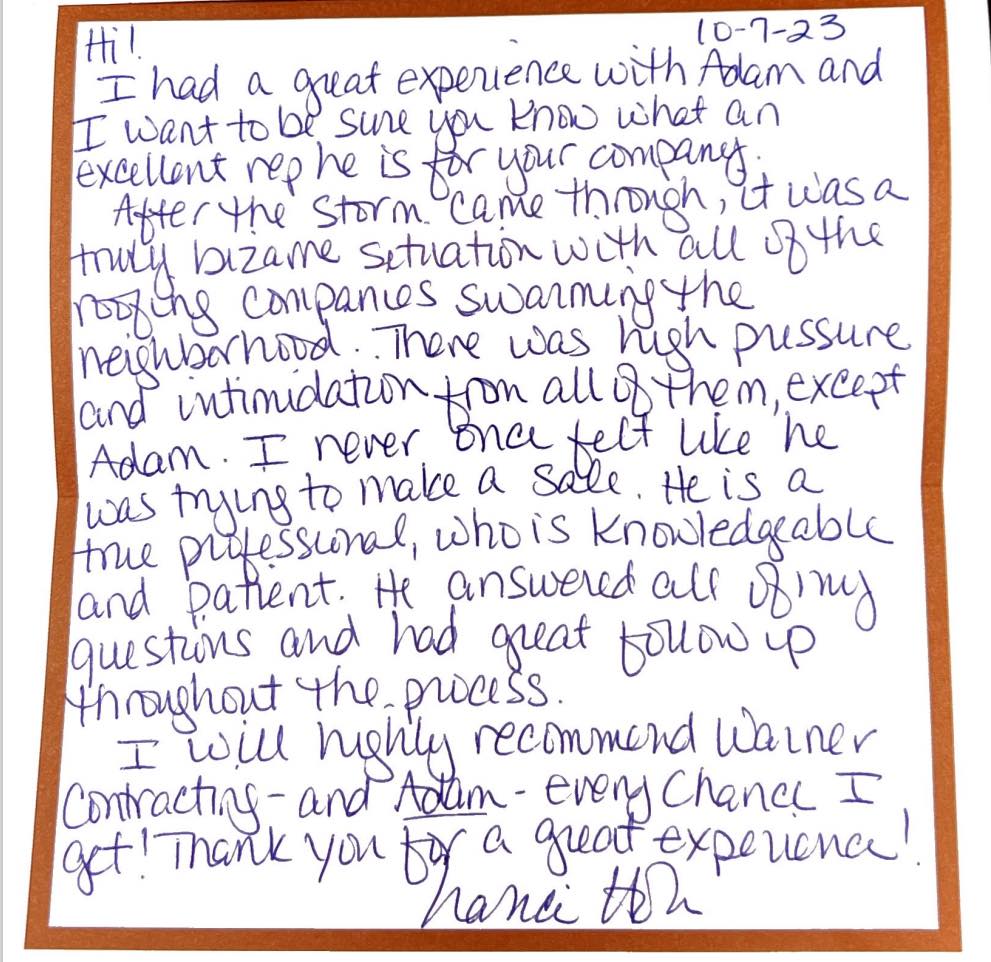 Hi! 10-7-23
I had a great experience with Adam and
I want to be sure you know what an
excellent rep he is for your company.
After the storm came through, it was a
truly bizarre situation with all of the
roofing companies swarming the
neighborhood. There was high pressure
and intimidation from all of them, except
Adam. I never once felt like he
was trying to make a sale. He is a
true professional, who is knowledgeable
and patient. He answered all of my
questions and had great follow up
throughout the process.
I will highly recommend Warner
Contracting - and Adam - every chance I
get! Thank you for a great experience!
Nanci